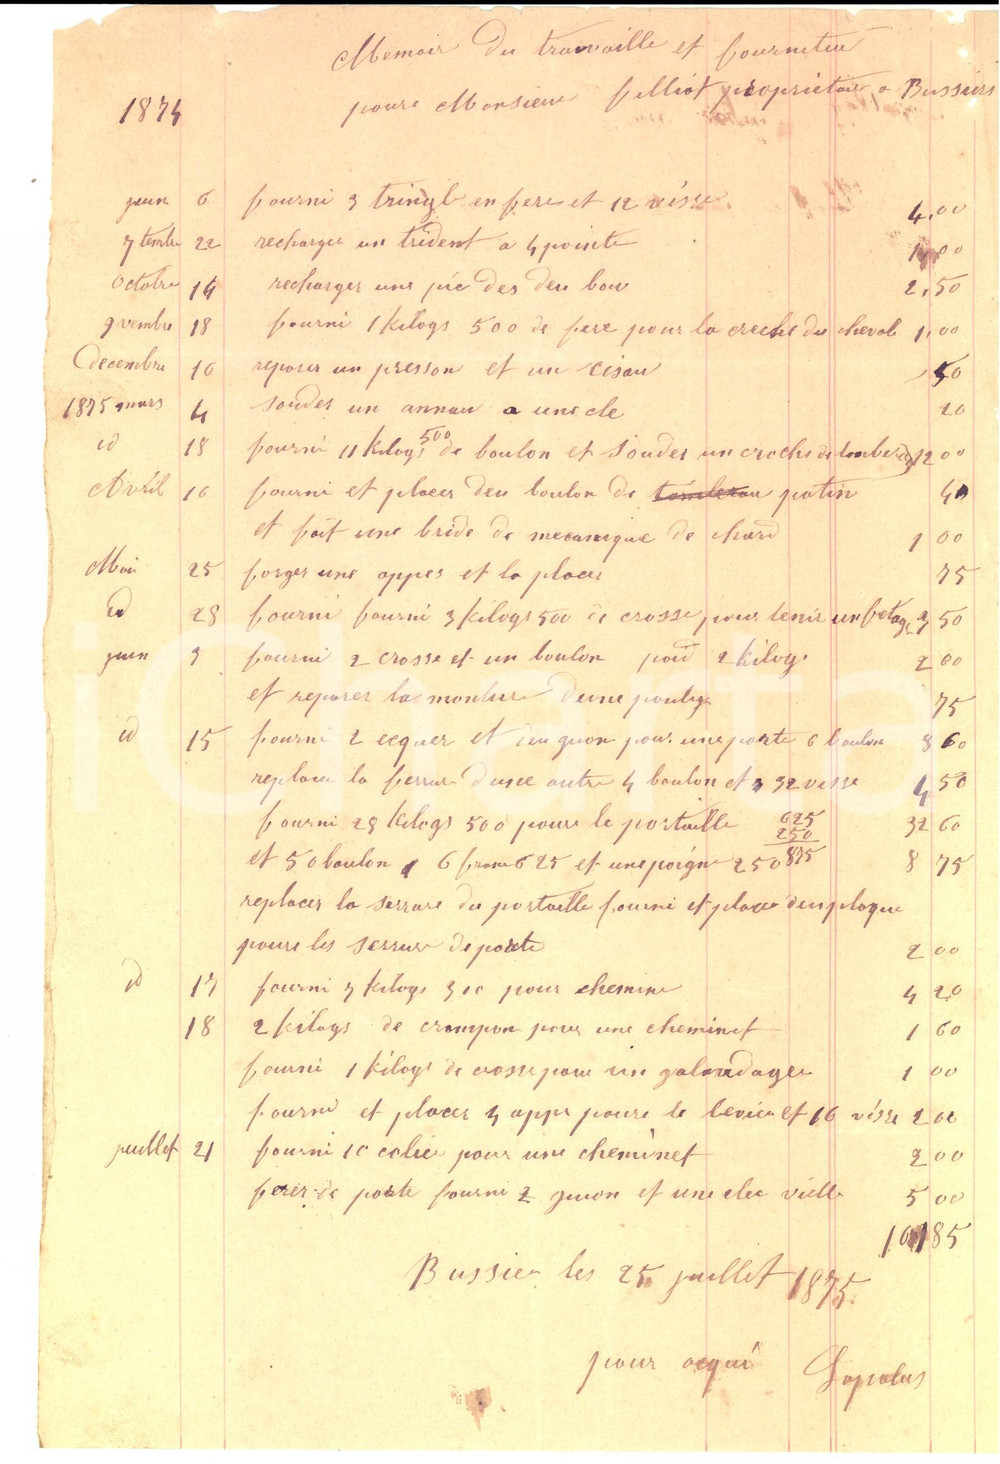 Memoir du travaille et fournitur
1874 poure Monsieur felliot propriétair a Bussiers
juin 6 fourni 3 tringl en fere et 12 visse 4.00
7 tembre 22 recharger un trident a 4 pointe 1.00
octobre 14 recharger une pic des deu bou 2.50
9 vembre 18 fourni 1 kilogs 500 de fere pour la creche du cheval 1.00
decembre 16 reparer un presson et un cisau 50
1875 mars 4 souder un annau a une cle 20
id 18 fourni 11 kilogs 500 de boulon et souder un croche de 12 00
Avril 16 fourni et placer deu boulon de patin 40
et fait une bride de mecanique de chard 1 00
Mai 25 forger une appes et la placer 75
id 28 fourni fourni 3 kilogs 500 de crosse pour tenir un 3 50
juin 3 fourni 2 crosse et un boulon poid 2 kilogs 2 00
et reparer la monture dune poulys 75
id 15 fourni 2 ecquer et deu guon pour une porte 6 boulon 3 60
replacer la ferrure dune autre 4 boulon et 32 visse 4 50
fourni 28 kilogs 500 poure le portaille 625 32 60
250
et 50 boulon 6 franc 625 et une poigne 250 875 8 75
replacer la serrure du portaille fourni et placer deu plaque
poure les serrure de porte 2 00
id 17 fourni 3 kilogs 300 pour chemine 4 20
18 2 kilogs de crampon pour une cheminet 1 60
fourni 1 kilogs de crosse pour un galandager 1 00
fourni et placer 4 appe poure le levier et 16 visse 2 00
juillet 21 fourni 10 colier pour une cheminet 2 00
ferer de porte fourni 2 guon et une cler vielle 5 00
101 85
Bussier les 25 juillet 1875
pour acqui Lapalus